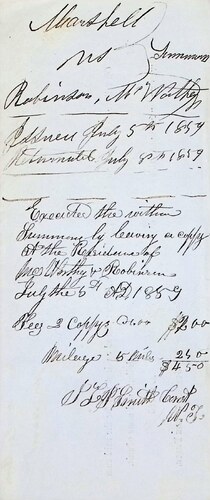 Marshell
vs } Summon
Robinson, McWorthy
Issued July 5th 1859
Returned July 5th 1859
Executed the within
Summon by leaving a copy
at the Residence of
Worthy & Robinson
July the 5th AD 1859
Fees 2 Copys $2.00
Mileage 5 Miles 2.50
$4.50
Smith Const